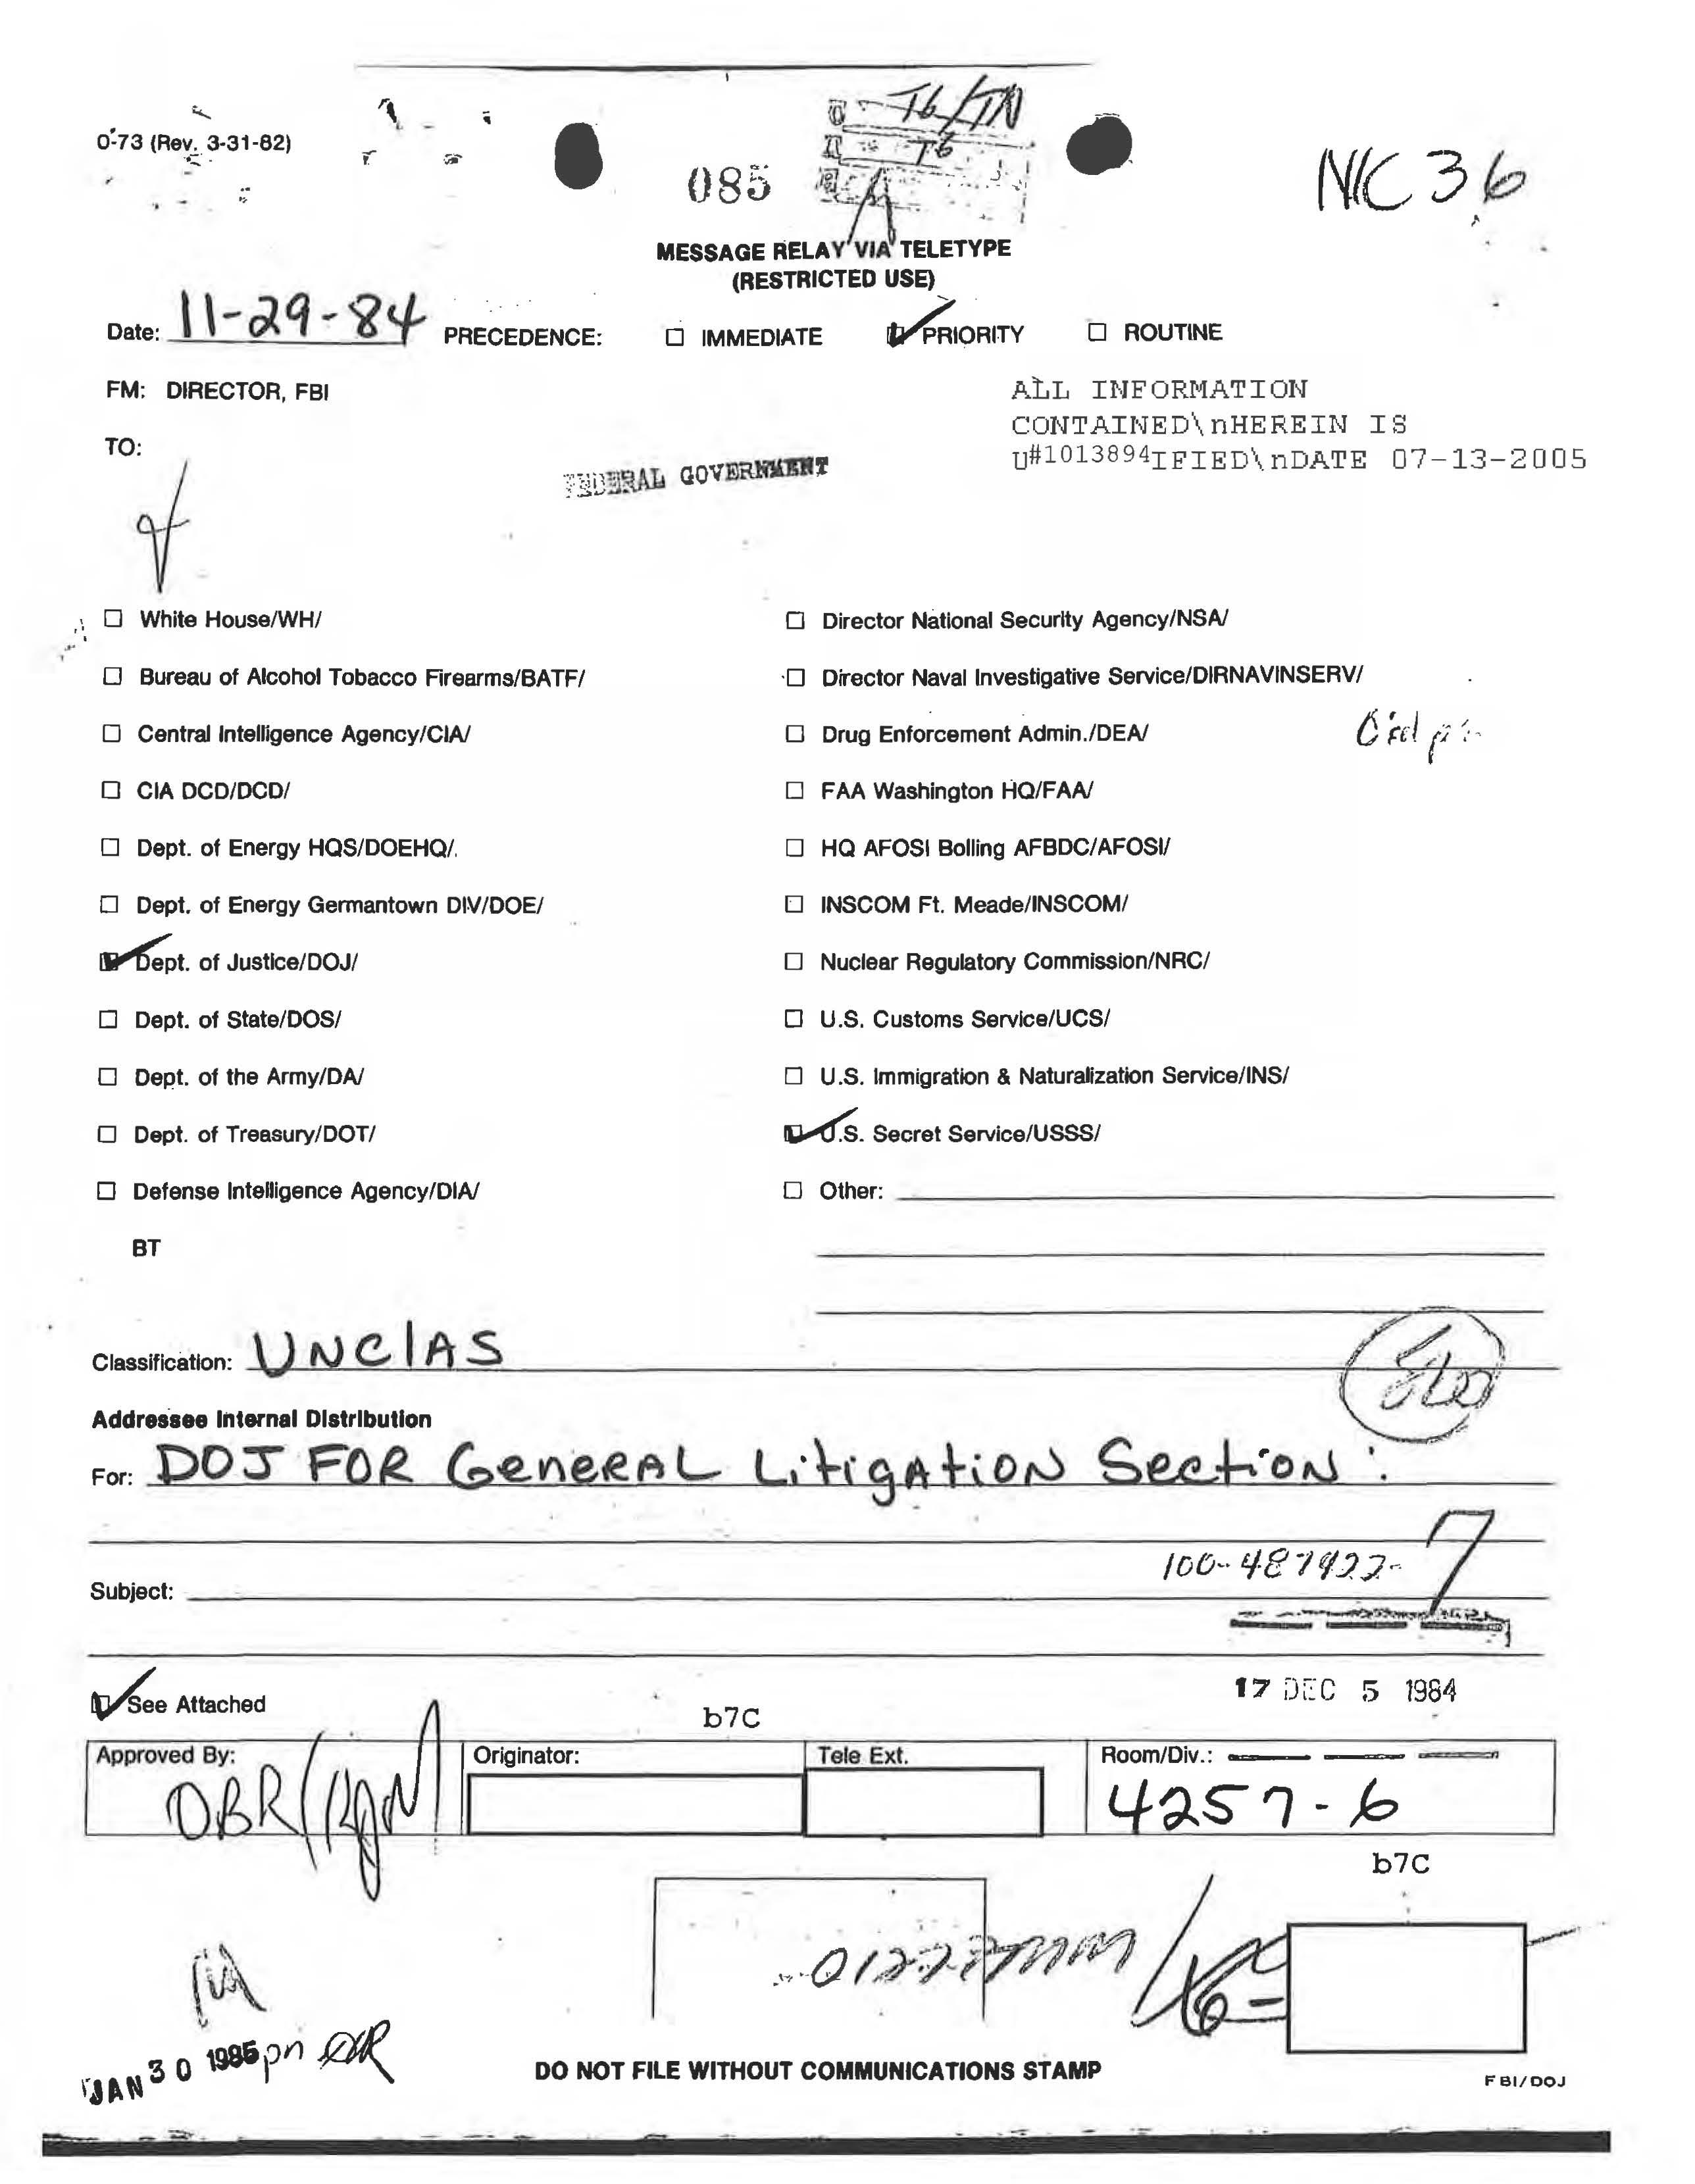 0-73 (Rev. 3-31-82)
085
T6/TN
T6
NIC 36
MESSAGE RELAY VIA TELETYPE
(RESTRICTED USE)
Date: 11-29-84 PRECEDENCE: ☐ IMMEDIATE ☑ PRIORITY ☐ ROUTINE
FM: DIRECTOR, FBI
TO:
FEDERAL GOVERNMENT
ALL INFORMATION
CONTAINED\nHEREIN IS
U#1013894IFIED\nDATE 07-13-2005
☐ White House/WH/
☐ Bureau of Alcohol Tobacco Firearms/BATF/
☐ Central Intelligence Agency/CIA/
☐ CIA DCD/DCD/
☐ Dept. of Energy HQS/DOEHQ/
☐ Dept. of Energy Germantown DIV/DOE/
☑ Dept. of Justice/DOJ/
☐ Dept. of State/DOS/
☐ Dept. of the Army/DA/
☐ Dept. of Treasury/DOT/
☐ Defense Intelligence Agency/DIA/
BT
☐ Director National Security Agency/NSA/
☐ Director Naval Investigative Service/DIRNAVINSERV/
☐ Drug Enforcement Admin./DEA/
☐ FAA Washington HQ/FAA/
☐ HQ AFOSI Bolling AFBDC/AFOSI/
☐ INSCOM Ft. Meade/INSCOM/
☐ Nuclear Regulatory Commission/NRC/
☐ U.S. Customs Service/UCS/
☐ U.S. Immigration & Naturalization Service/INS/
☑ U.S. Secret Service/USSS/
☐ Other:
Classification: UNClAS
Addressee Internal Distribution
For: DOJ FOR GeneRAL LitigAtioN SectioN
Subject:
7
17 DEC 5 1984
☑ See Attached
b7C
Approved By: Originator: Tele Ext. Room/Div.:
OBR 4257-6
b7C
JAN 30 1985
DO NOT FILE WITHOUT COMMUNICATIONS STAMP
FBI/DOJ